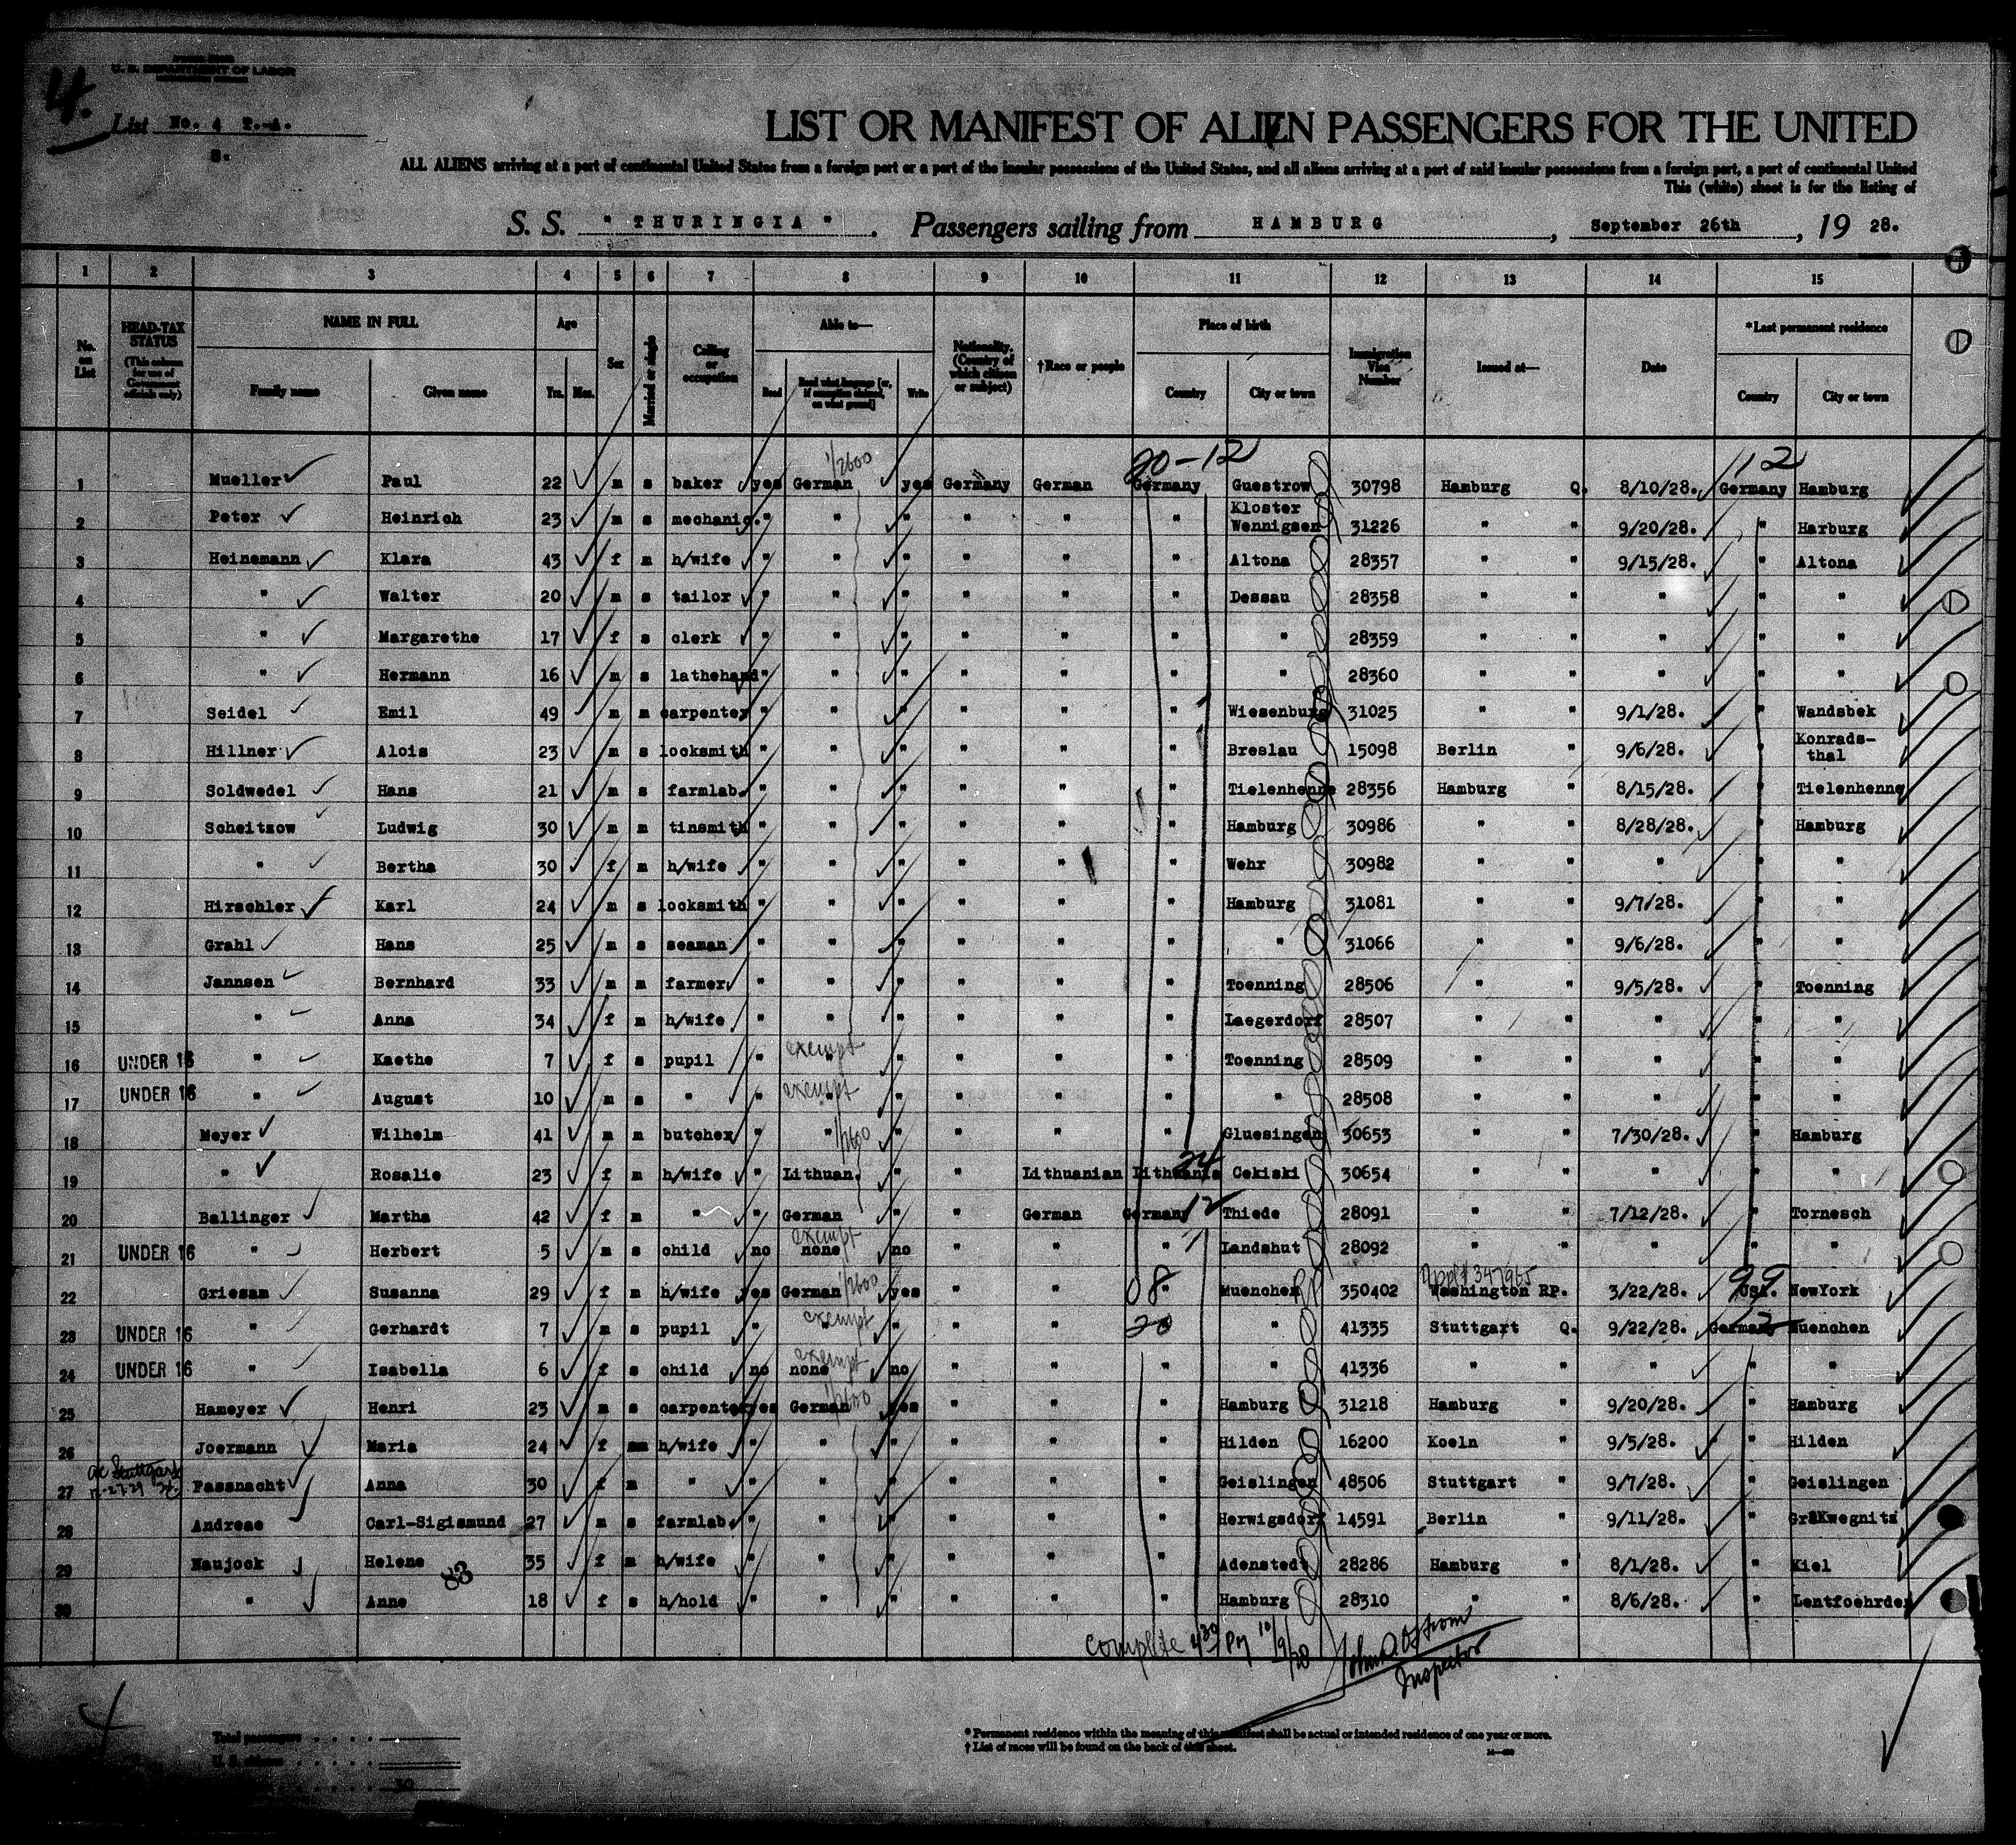 4.
U. S. DEPARTMENT OF LABOR
List No. 4 T.-A.
S.
LIST OR MANIFEST OF ALIEN PASSENGERS FOR THE UNITED
ALL ALIENS arriving at a port of continental United States from a foreign port or a port of the insular possessions of the United States, and all aliens arriving at a port of said insular possessions from a foreign port, a port of continental United
This (white) sheet is for the listing of
S. S. " THURINGIA ". Passengers sailing from HAMBURG, September 26th, 19 28.
1 2 3 4 5 6 7 8 9 10 11 12 13 14 15
No. on List
HEAD-TAX STATUS (This column for use of Government officials only)
NAME IN FULL Family name Given name
Age Yrs. Mos.
Sex
Married or single
Calling or occupation
Able to— Read Read what language [or, if exemption claimed, on what ground] Write
Nationality. (Country of which citizen or subject)
†Race or people
Place of birth Country City or town
Immigration Visa Number
Issued at—
Date
*Last permanent residence Country City or town
1/2600 20-12 12
1 Mueller Paul 22 m s baker yes German yes Germany German Germany Guestrow 30798 Hamburg Q. 8/10/28. Germany Hamburg
2 Peter Heinrich 23 m s mechanic. " " " " " " Kloster Wennigsen 31226 " " 9/20/28. " Harburg
3 Heinemann Klara 43 f m h/wife " " " " " " Altona 28357 " " 9/15/28. " Altona
4 " Walter 20 m s tailor " " " " " " Dessau 28358 " " " " "
5 " Margarethe 17 f s clerk " " " " " " " 28359 " " " " "
6 " Hermann 16 m s lathehand " " " " " " " 28360 " " " " "
7 Seidel Emil 49 m m carpenter " " " " " " Wiesenburg 31025 " " 9/1/28. " Wandsbek
8 Hillner Alois 23 m s locksmith " " " " " " Breslau 15098 Berlin " 9/6/28. " Konrads-thal
9 Soldwedel Hans 21 m s farmlab. " " " " " " Tielenhenne 28356 Hamburg " 8/15/28. " Tielenhenne
10 Scheitzow Ludwig 30 m m tinsmith " " " " " " Hamburg 30986 " " 8/28/28. " Hamburg
11 " Bertha 30 f m h/wife " " " " " " Wehr 30982 " " " " "
12 Hirschler Karl 24 m s locksmith " " " " " " Hamburg 31081 " " 9/7/28. " "
13 Grahl Hans 25 m s seaman " " " " " " " 31066 " " 9/6/28. " "
14 Jannsen Bernhard 33 m m farmer " " " " " " Toenning 28506 " " 9/5/28. " Toenning
15 " Anna 34 f m h/wife " " " " " " Laegerdorf 28507 " " " " "
16 UNDER 16 " Kaethe 7 f s pupil " exempt " " " " " Toenning 28509 " " " " "
17 UNDER 16 " August 10 m s " " exempt " " " " " " 28508 " " " " "
18 Meyer Wilhelm 41 m m butcher " " 1/2600 " " " " Gluesingen 30653 " " 7/30/28. " Hamburg
19 " Rosalie 23 f m h/wife " Lithuan. " " Lithuanian Lithuania 24 Cekiski 30654 " " " " "
20 Ballinger Martha 42 f m " " German " " German Germany 12 Thiede 28091 " " 7/12/28. " Tornesch
21 UNDER 16 " Herbert 5 m s child no exempt none no " " " Landshut 28092 " " " " "
22 Griesam Susanna 29 f m h/wife yes German 1/2600 yes " " 08 " Muenchen 350402 Appl# 347965 Washington RP. 3/22/28. 99 USA. NewYork
23 UNDER 16 " Gerhardt 7 m s pupil " exempt " " " " 20 " 41335 Stuttgart Q. 9/22/28. Germany 12 Muenchen
24 UNDER 16 " Isabella 6 f s child no exempt none no " " " " 41336 " " " " "
25 Hameyer Henri 23 m s carpenter yes German 1/2600 yes " " " Hamburg 31218 Hamburg " 9/20/28. " Hamburg
26 Joermann Maria 24 f m h/wife " " " " " " Hilden 16200 Koeln " 9/5/28. " Hilden
27 Fassnacht Anna 30 f m " " " " " " " Geislingen 48506 Stuttgart " 9/7/28. " Geislingen
28 Andreae Carl-Sigismund 27 m s farmlab. " " " " " " Herwigsdorf 14591 Berlin " 9/11/28. " Gr.Kwegnitz
29 Naujock Helene 35 f m h/wife " " " " " " Adenstedt 28286 Hamburg " 8/1/28. " Kiel
30 " Anne 18 f s h/hold " " " " " " Hamburg 28310 " " 8/6/28. " Lentfoehrden
complete 4 30 PM 10/9/28 John A. Ostrom
Inspector
4
Total passengers
U. S. citizens
30
* Permanent residence within the meaning of this manifest shall be actual or intended residence of one year or more.
† List of races will be found on the back of this sheet.